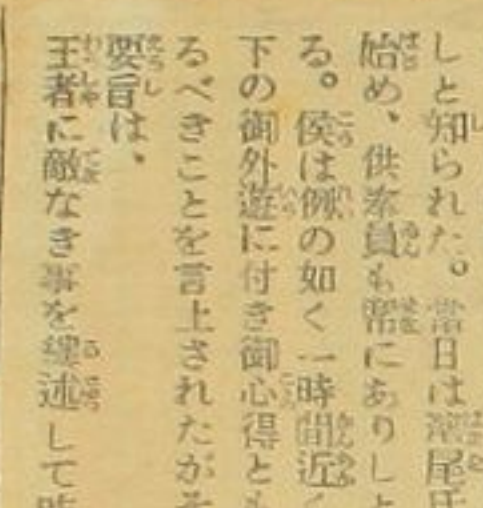 しと知られた。當日は瀧尾氏
始め、供奉員も常にありしと
る。侯は例の如く一時間近く
下の御外遊に付き御心得とも
るべきことを言上されたがそ
要旨は、
王者に敵なき事を縷述して